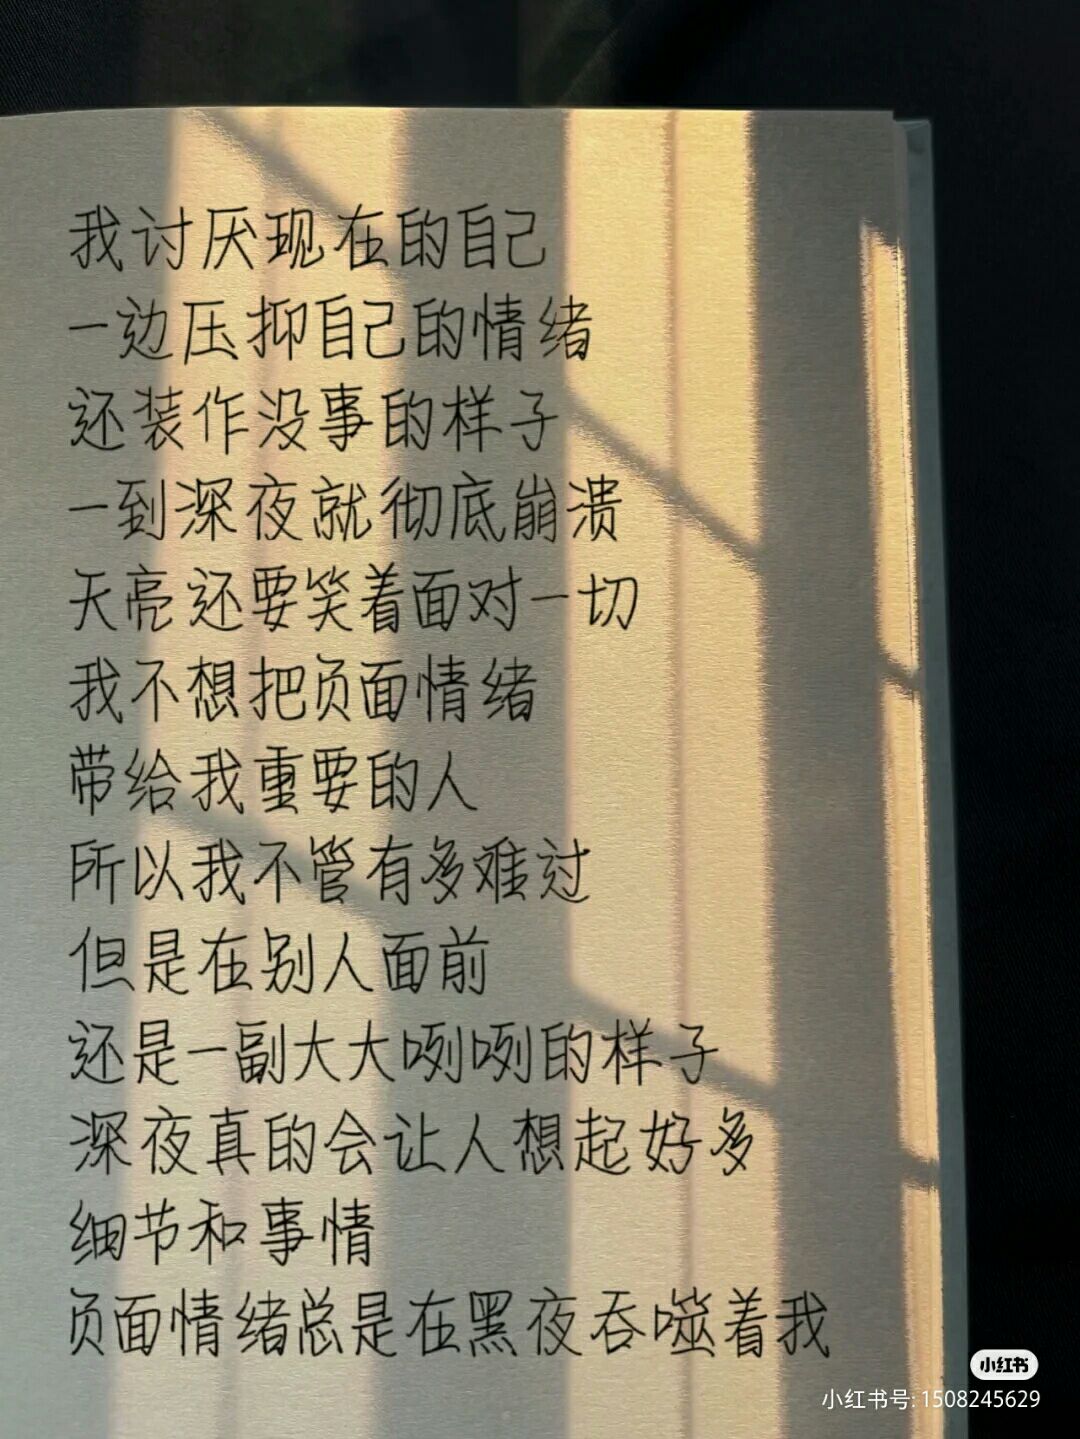 我讨厌现在的自己
一边压抑自己的情绪
还装作没事的样子
一到深夜就彻底崩溃
天亮还要笑着面对一切
我不想把负面情绪
带给我重要的人
所以我不管有多难过
但是在别人面前
还是一副大大咧咧的样子
深夜真的会让人想起好多
细节和事情
负面情绪总是在黑夜吞噬着我
小红书
小红书号: 1508245629